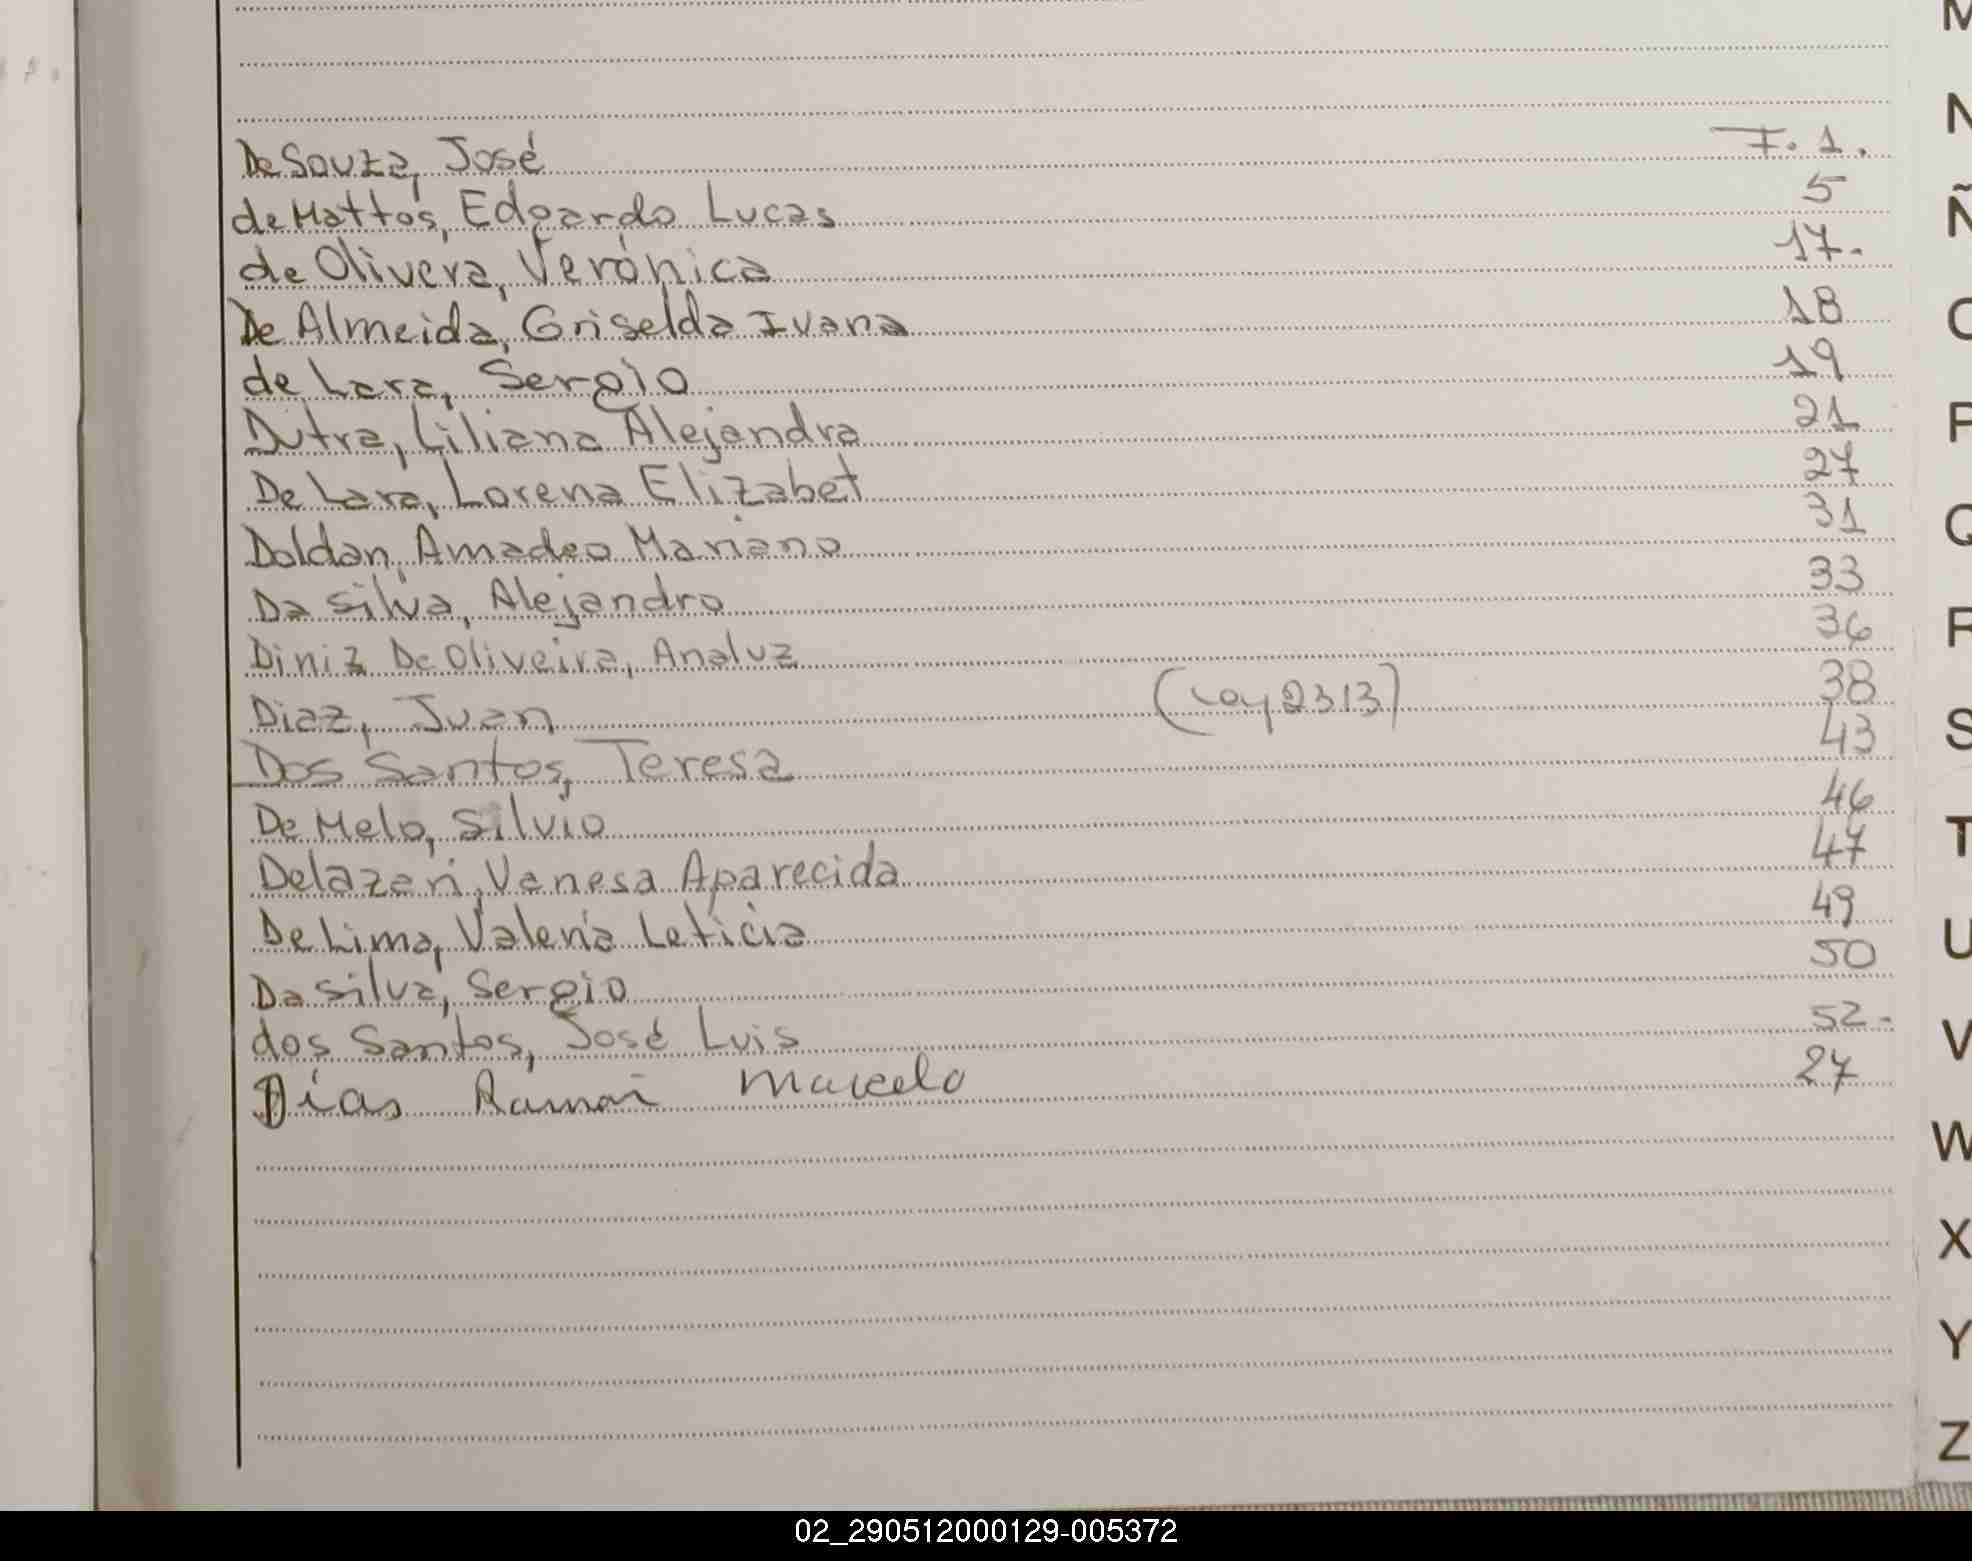 De Souza, José F. 1.
de Mattos, Edgardo Lucas 5
de Olivera, Verónica 17.
De Almeida, Griselda Ivana 18
de Lara, Sergio 19
Dutra, Liliana Alejandra 21
De Lara, Lorena Elizabet 27
Doldan, Amadeo Mariano 31
Da Silva, Alejandro 33
Diniz De Oliveira, Analuz 36
Diaz, Juan (Ley 2313) 38
Dos Santos, Teresa 43
De Melo, Silvio 46
Delazeri, Vanesa Aparecida 47
De Lima, Valeria Leticia 49
Da Silva, Sergio 50
dos Santos, José Luis 52.
Días Ramon Marcelo 27
M
N
Ñ
O
P
Q
R
S
T
U
V
W
X
Y
Z
02_290512000129-005372